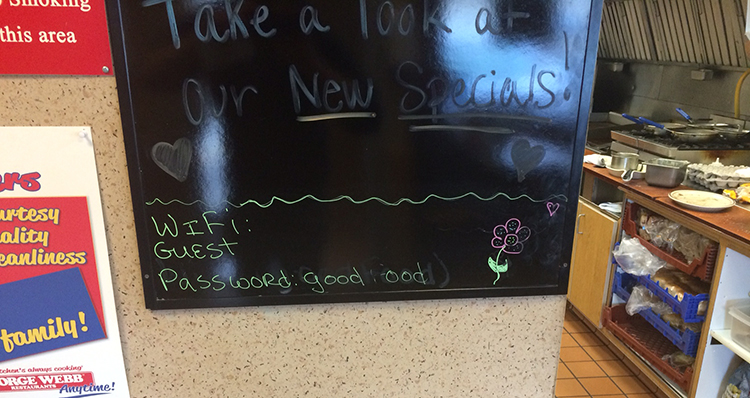 Smoking
this area
Take a look at
our New Specials!
WiFi:
Guest
Password: good food
urtesy
ality
eanliness
family!
tchen's always cooking
ORGE WEBB
RESTAURANTS
Anytime!